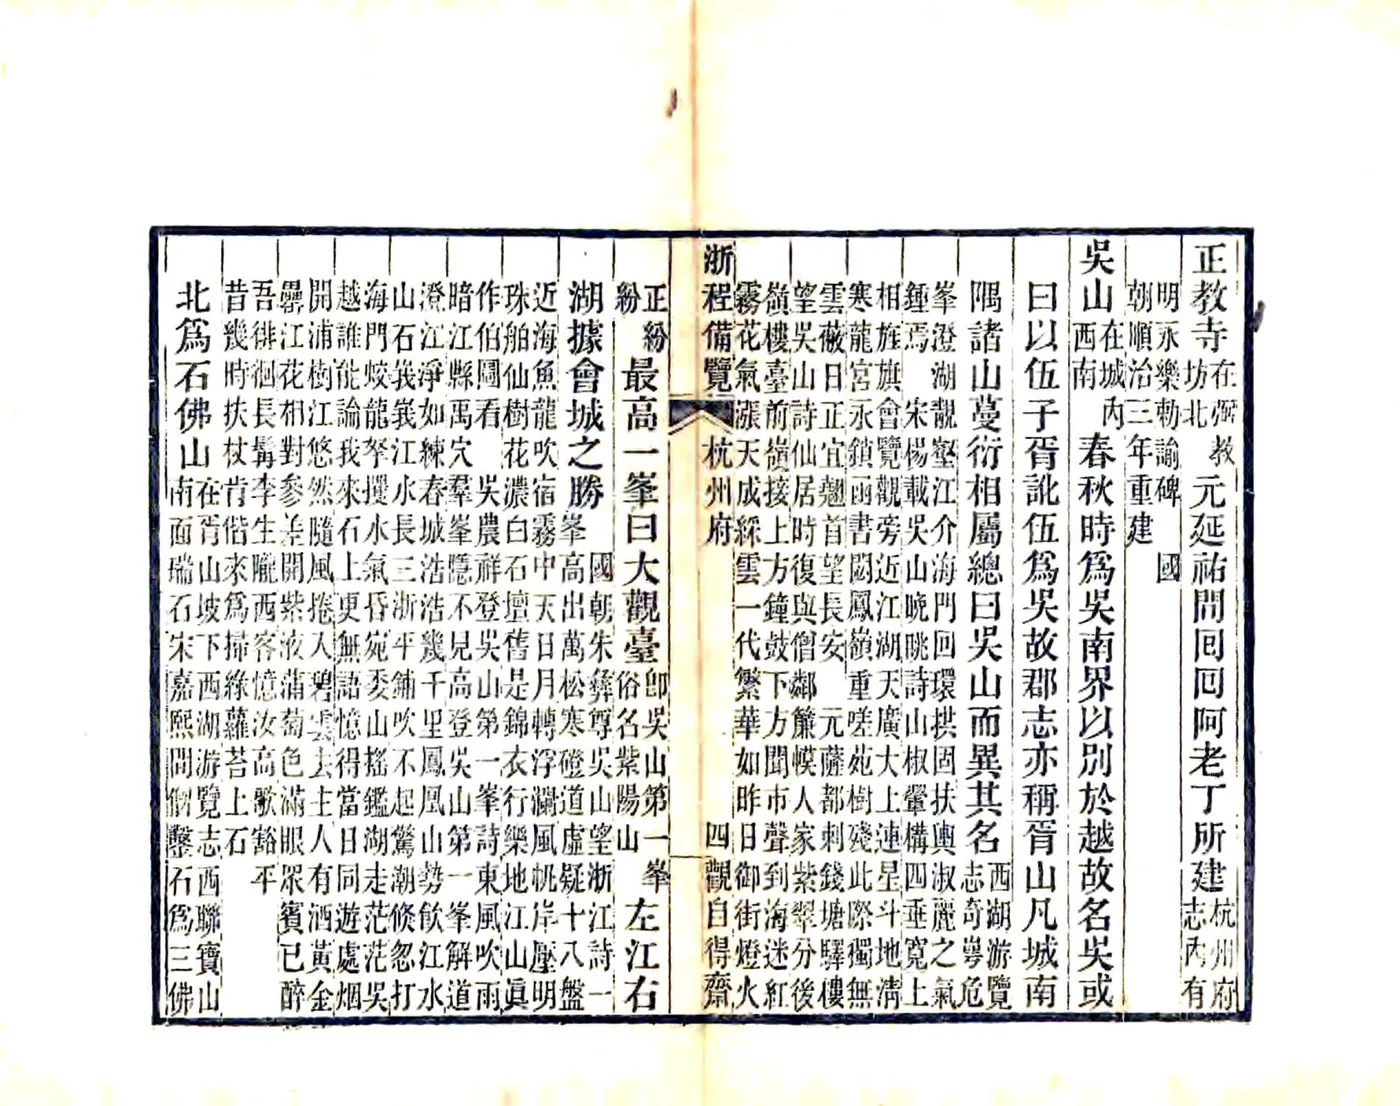 正教寺在弼教坊北元延祐間回回阿老丁所建杭州府志內有
明永樂勅諭碑 國
朝順治三年重建
吳山在城內西南春秋時爲吳南界以別於越故名吳或
曰以伍子胥訛伍爲吳故郡志亦稱胥山凡城南
隅諸山蔓衍相屬總曰吳山而異其名西湖游覽志奇崿危
峯澄湖靚壑江介海門回環拱固扶輿淑麗之氣
鍾焉 宋楊載吳山晚眺詩山椒鼙構四垂寬上
相旌旗會覽觀旁近江湖天廣大上連星斗地淸
寒龍宮永鎖函書閟鳳嶺重嗟苑樹殘此際獨無
雲蔽日正宜翹首望長安 元薩都剌錢塘驛樓
望吳山詩仙居時復與僧鄰簾幙人家紫翠分後
嶺樓臺前嶺接上方鐘鼓下方聞市聲到海迷紅
霧花氣漲天成綵雲一代繁華如昨日御街燈火
浙程備覽 杭州府 四 觀自得齋
正紛紛最高一峯曰大觀臺卽吳山第一峯俗名紫陽山左江右
湖據會城之勝 國朝朱彝尊吳山望浙江詩一峯高出萬松寒磴道虛疑十八盤
近海魚龍吹宿霧中天日月轉浮瀾風帆岸壓明
珠舶仙樹花濃白石壇舊是錦衣行樂地江山眞
作伯圖看 吳農祥登吳山第一峯詩東風吹雨
暗江縣禹穴羣峯隱不見高登吳山第一峯解道
澄江淨如練春城浩浩幾千里鳳凰山勢飮江水
山石我峩江水長三浙平鋪吹不起驚潮倏忽打
海門蛟龍孥攫水氣昏宛委山搖鑑湖走茫茫吳
越誰能論我來石上更無語憶得當日同遊處烟
開浦樹江悠然隨風捲入碧雲去主人有酒黃金
罍江花相對參差開紫液蒲萄色滿眼眾賓已醉
吾徘徊長髯李生隴西客憶汝高歌豁平
昔幾時扶杖肯偕來爲掃綠蘿苔上石
北爲石佛山在胥山坡下西湖游覽志西聯寶山南面瑞石宋嘉熙間僧鑿石爲三佛